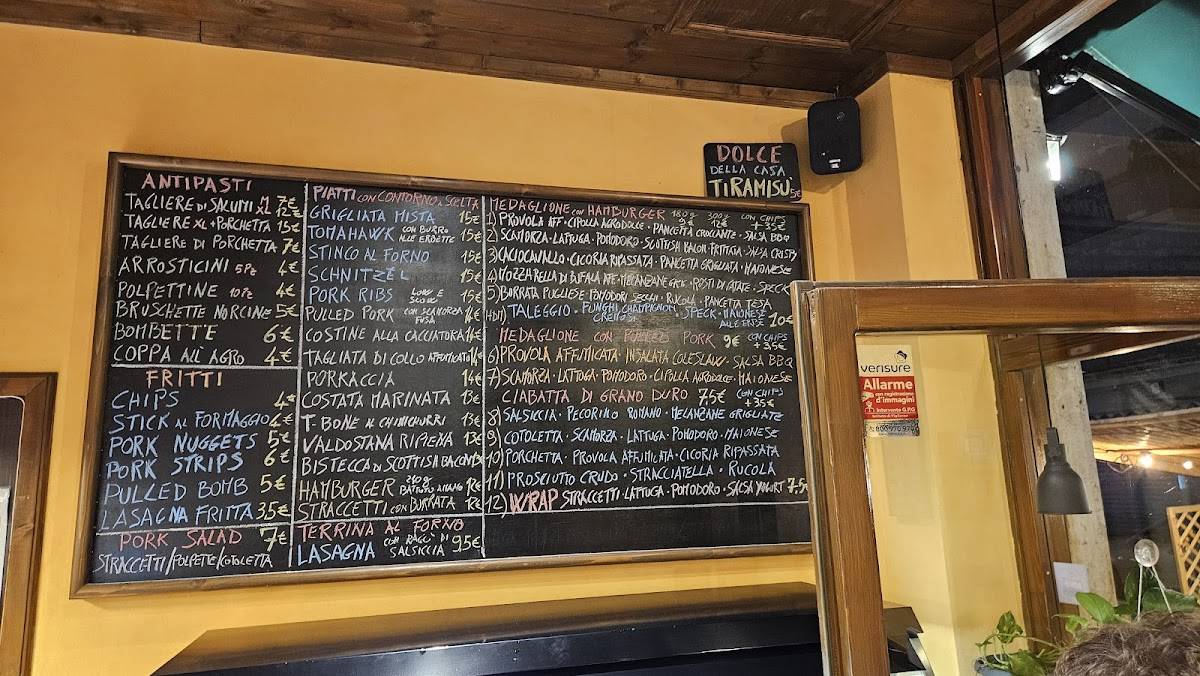 ANTIPASTI
TAGLIERE DI SALUMI M 7€
XL 12€
TAGLIERE XL + PORCHETTA 15€
TAGLIERE DI PORCHETTA 7€
ARROSTICINI 5PZ 4€
POLPETTINE 10PZ 4€
BRUSCHETTE NORCINE 5€
BOMBETTE 6€
COPPA ALL'AGRO 4€
FRITTI
CHIPS 4€
STICK AL FORMAGGIO 4€
PORK NUGGETS 5€
PORK STRIPS 6€
PULLED BOMB 5€
LASAGNA FRITTA 3,5€
PORK SALAD 7€
STRACCETTI/POLPETTE/COTOLETTA
PIATTI CON CONTORNO A SCELTA
GRIGLIATA MISTA 15€
TOMAHAWK CON BURRO ALLE ERBETTE 15€
STINCO AL FORNO 15€
SCHNITZEL 15€
PORK RIBS LOW E SLOW 15€
PULLED PORK CON SCAMORZA FUSA 14€
COSTINE ALLA CACCIATORA 14€
TAGLIATA DI COLLO AFFUMICATO 14€
PORKACCIA 14€
COSTATA MARINATA 13€
T-BONE AL CHIMICHURRI 13€
VALDOSTANA RIPIENA 13€
BISTECCA DI SCOTTISH BACON 13€
HAMBURGER 240g BATTUTO A MANO 12€
STRACCETTI CON BURRATA 12€
TERRINA AL FORNO
LASAGNA CON RAGÙ DI SALSICCIA 9,5€
DOLCE
DELLA CASA
TIRAMISU' 5€
MEDAGLIONE CON HAMBURGER 180g 9€ 300g 12€ CON CHIPS +3,5€
1) PROVOLA AFF · CIPOLLA AGRODOLCE · PANCETTA CROCCANTE · SALSA BBQ
2) SCAMORZA · LATTUGA · POMODORO · SCOTTISH BACON · FRITTATA · SALSA CRISTY
3) CACIOCAVALLO · CICORIA RIPASSATA · PANCETTA GRIGLIATA · MAIONESE
4) MOZZARELLA DI BUFALA AFF · MELANZANE GRIG · ROSTI DI PATATE · SPECK
5) BURRATA PUGLIESE · POMODORI SECCHI · RUCOLA · PANCETTA TESA
TALEGGIO · FUNGHI CHAMPIGNON CREMOSI · SPECK · MAIONESE ALLE ERBE 10€
MEDAGLIONE CON PULLED PORK 9€ CON CHIPS +3,5€
6) PROVOLA AFFUMICATA · INSALATA COLESLAW · SALSA BBQ
7) SCAMORZA · LATTUGA · POMODORO · CIPOLLA AGRODOLCE · MAIONESE
CIABATTA DI GRANO DURO 7,5€ CON CHIPS +3,5€
8) SALSICCIA · PECORINO ROMANO · MELANZANE GRIGLIATE
9) COTOLETTA · SCAMORZA · LATTUGA · POMODORO · MAIONESE
10) PORCHETTA · PROVOLA AFFUMICATA · CICORIA RIPASSATA
11) PROSCIUTTO CRUDO · STRACCIATELLA · RUCOLA
12) WRAP STRACCETTI · LATTUGA · POMODORO · SALSA YOGURT 7,5€
verisure
Allarme
con registrazione
d'immagini
Intervento G.P.G.
JBL